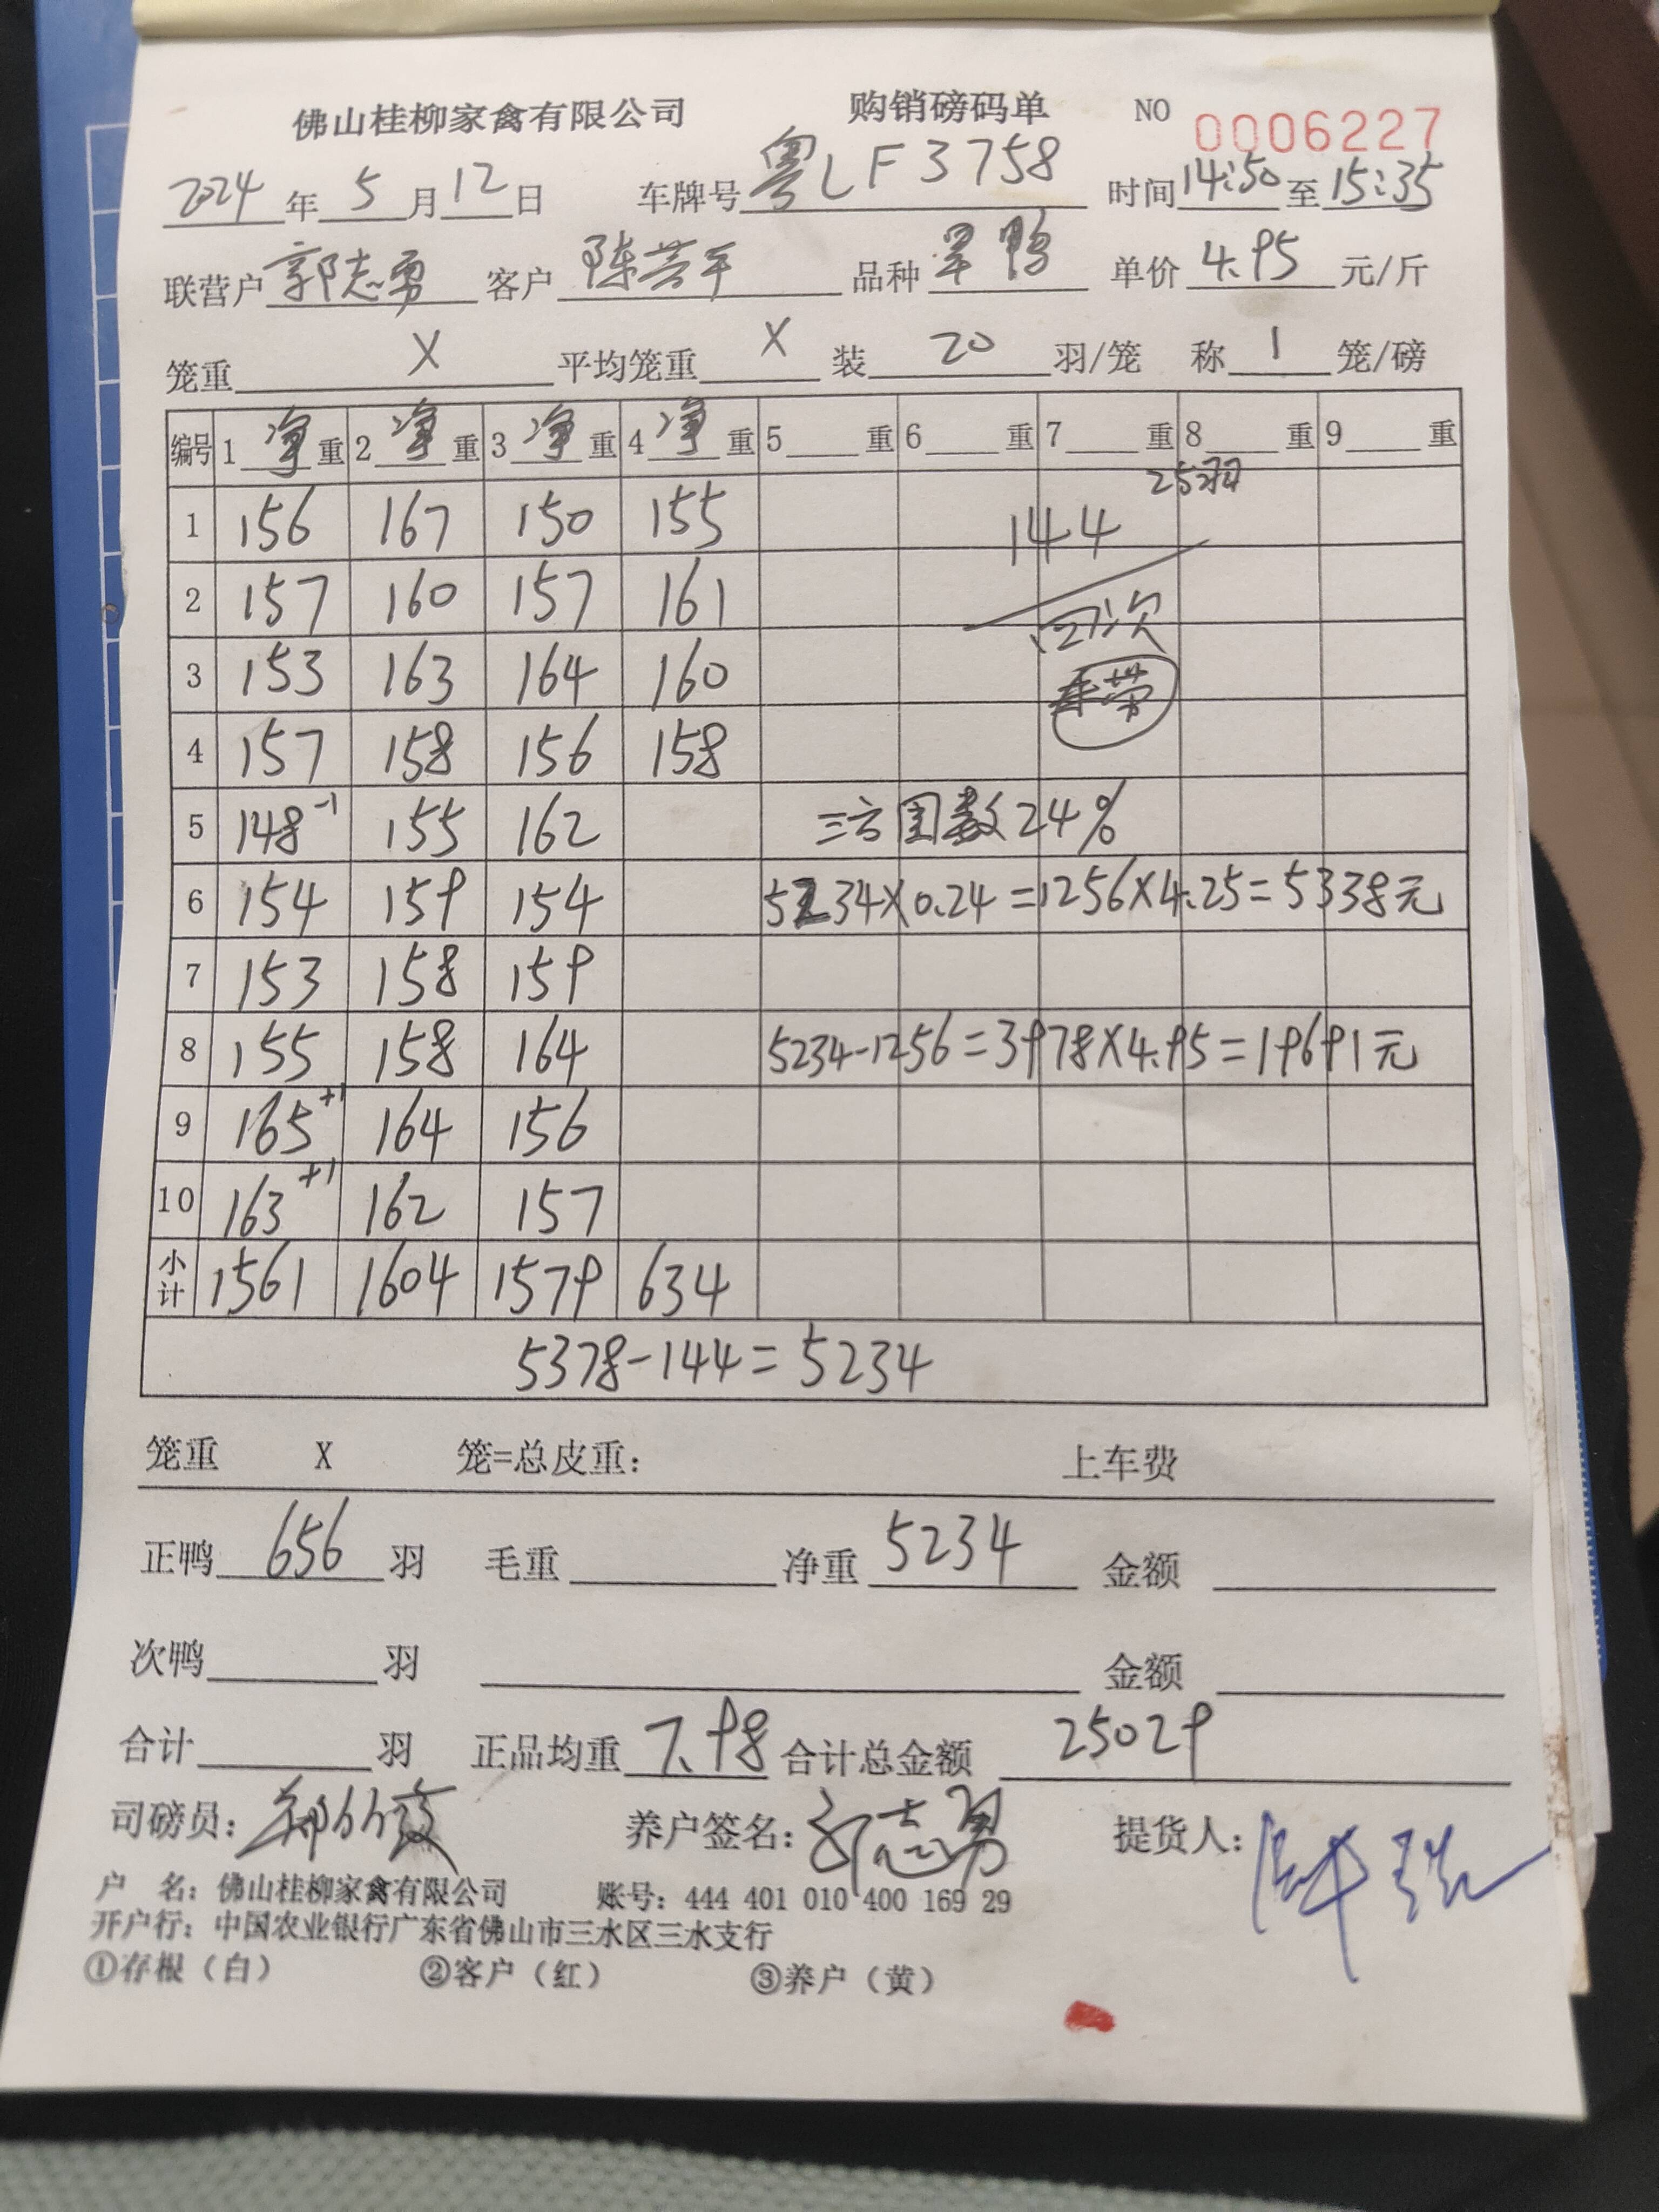 佛山桂柳家禽有限公司 购销磅码单 NO 0006227
2024 年 5 月 12 日 车牌号 粤LF3758 时间 14:50 至 15:35
联营户 郭志勇 客户 陈芸平 品种 旱鸭 单价 4.95 元/斤
笼重 X 平均笼重 X 装 20 羽/笼 称 1 笼/磅
编号 1 净 重 2 净 重 3 净 重 4 净 重 5 重 6 重 7 重 8 重 9 重
25羽
1 156 167 150 155 144
2 157 160 157 161 回次
3 153 163 164 160
4 157 158 156 158
5 148 -1 155 162 三方 数24%
6 154 159 154 5234X0.24=1256X4.25=5338元
7 153 158 159
8 155 158 164 5234-1256=3978X4.95=19691元
9 165 +1 164 156
10 163 +1 162 157
小计 1561 1604 1579 634
5378-144=5234
笼重 X 笼=总皮重: 上车费
正鸭 656 羽 毛重 净重 5234 金额
次鸭 羽 金额
合计 羽 正品均重 7.98 合计总金额 25029
司磅员: 养户签名: 郭志勇 提货人:
户 名: 佛山桂柳家禽有限公司 账号: 444 401 010 400 169 29
开户行: 中国农业银行广东省佛山市三水区三水支行
①存根（白） ②客户（红） ③养户（黄）